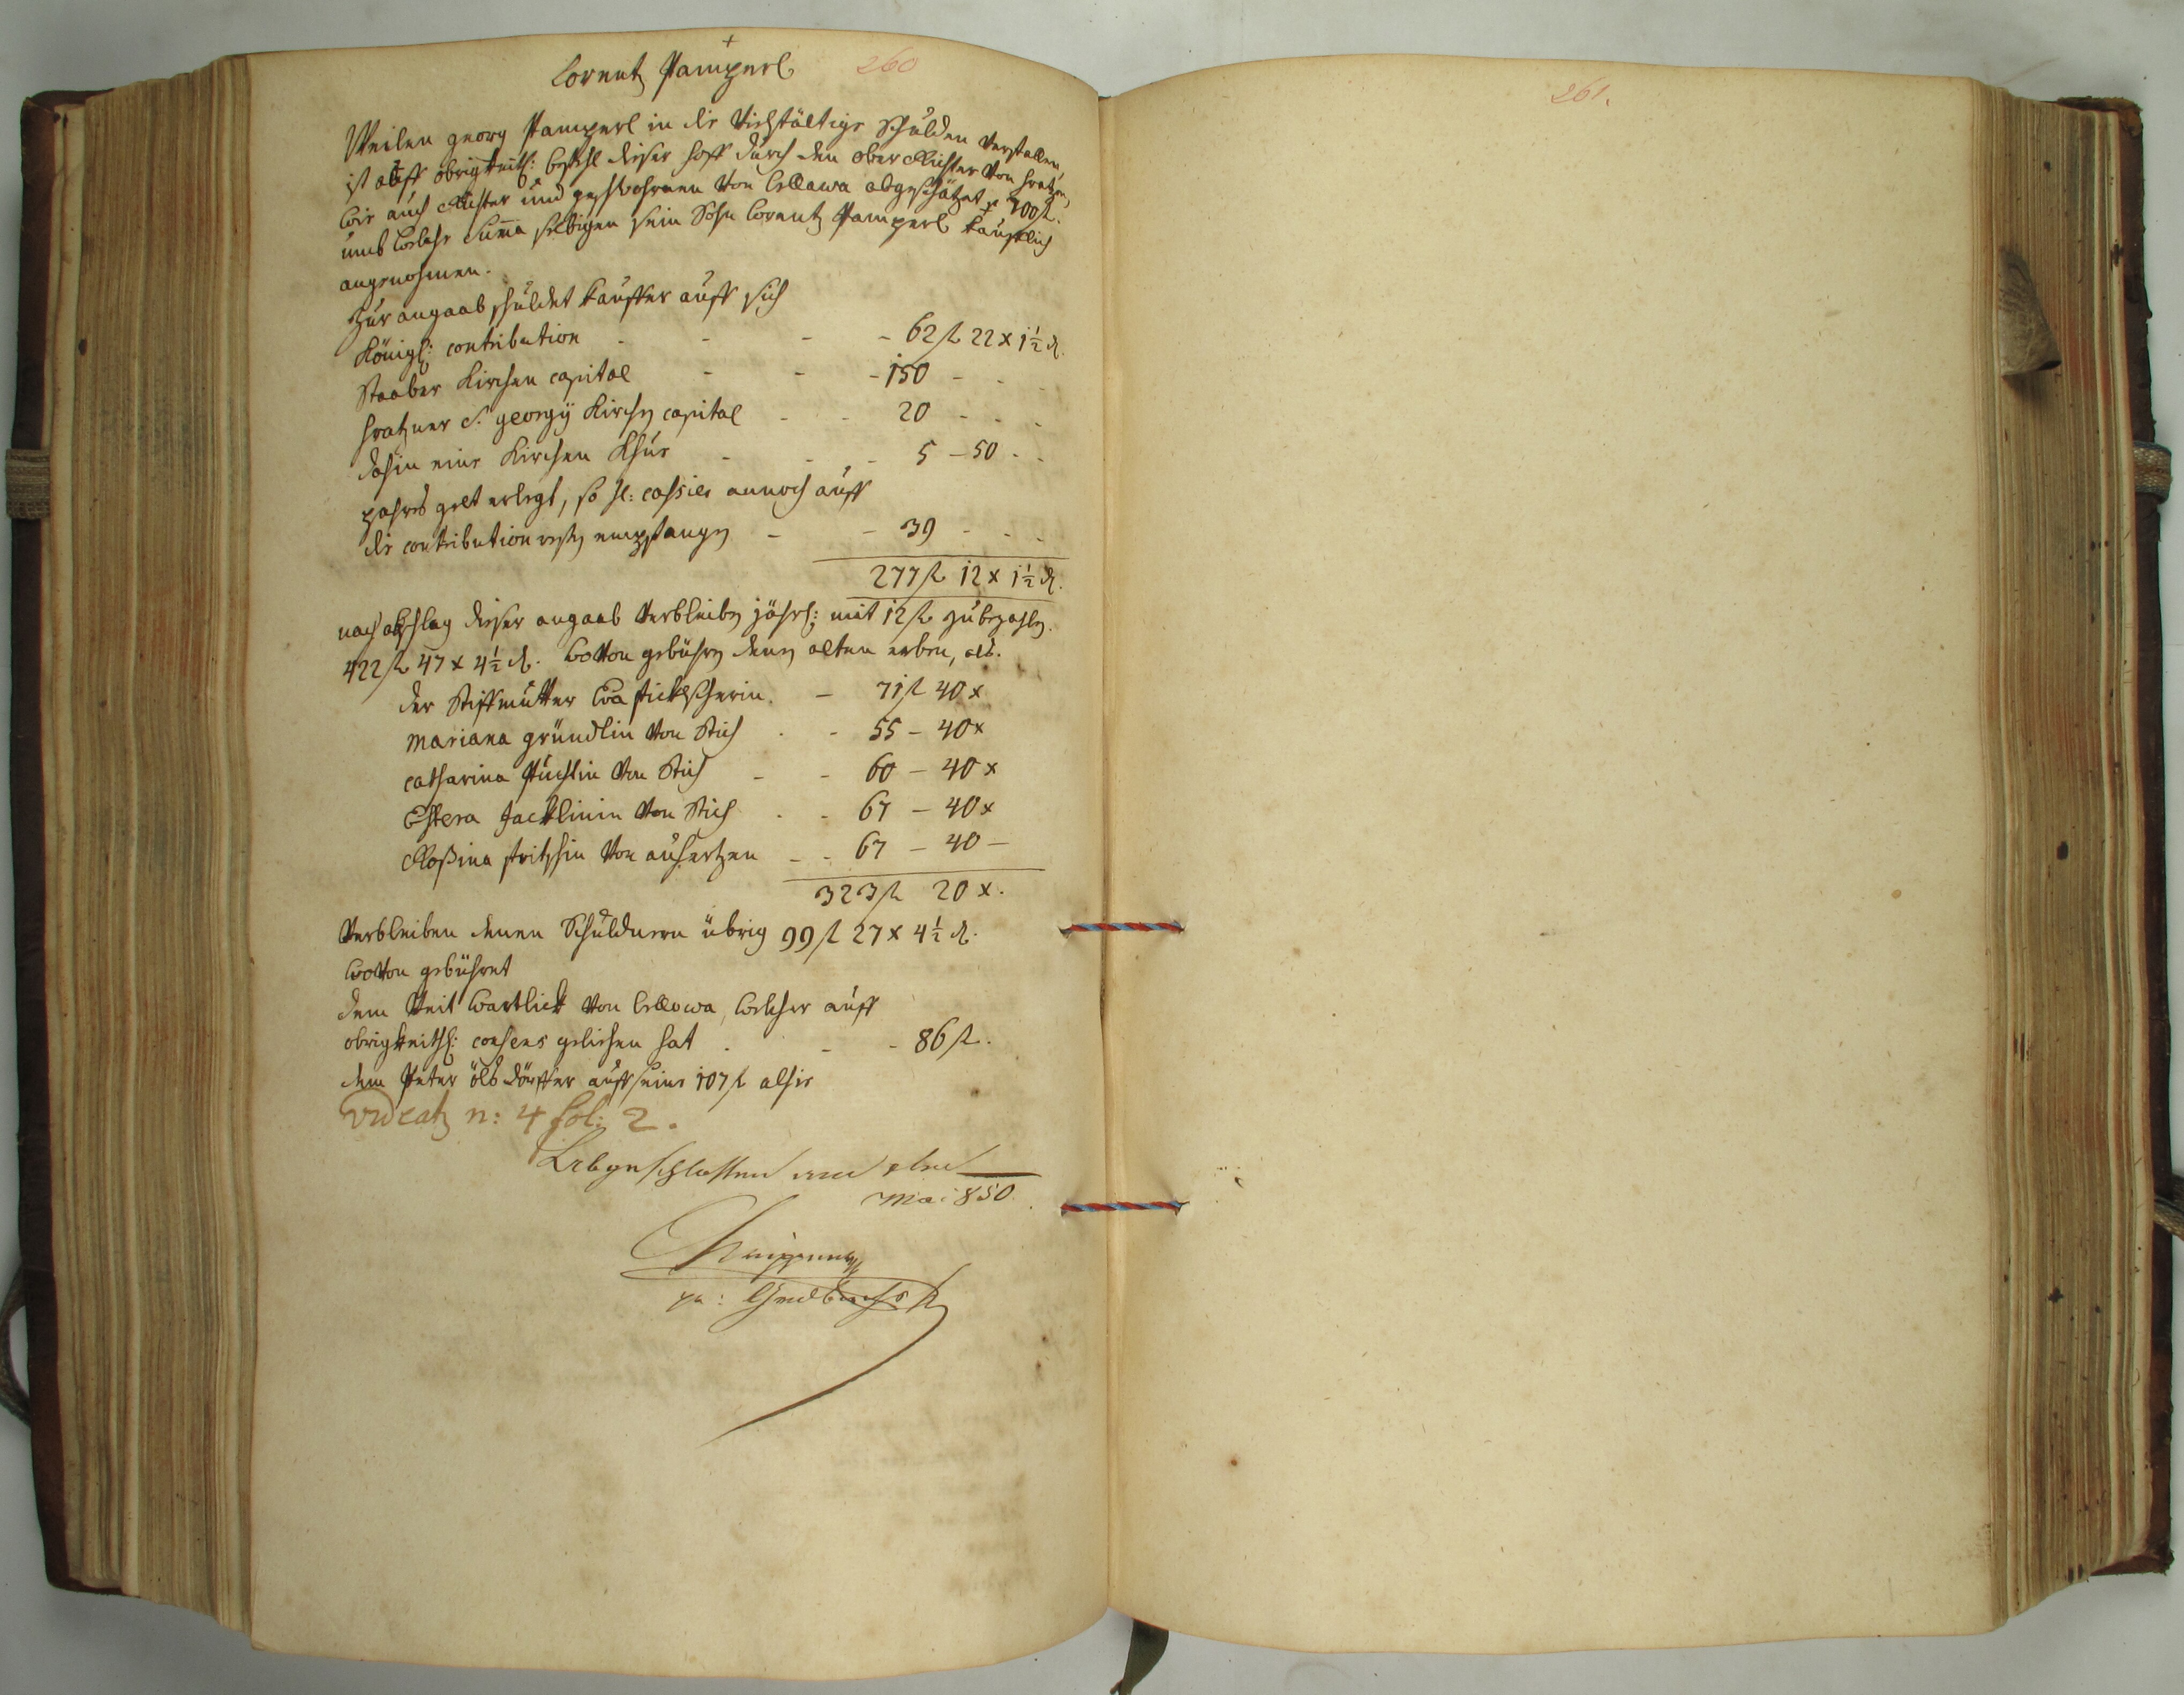 +
Lorentz Pamperl 260
Weilen georg Pamperl in die Vielfältige Schulden Verfallen,
ist auff obrigkeitl: befehl dieser hoff durch den ober Richter Von hratzen,
wie auch Richter und geschwohrnen Von Lellawa abgeschätzet p 700 fl.
umb welche Suma selbigen sein Sohn Lorentz Pamperl kaufflich
angenohmen.
Zur angaab schuldet kauffer auff sich
Königl: contribution - - - - 62 fl 22 x 1½ d.
Staaber Kirchen capital - - - 150 - - -
hratzner S. georgij Kirchen capital - - 20 - - -
dahin eine Kirchen Khue - - - 5 - 50 - -
pahres gelt erlegt, so H: cassier annoch auff
die contribution resten empfangen - - 39 - - -
277 fl 12 x 1½ d.
nach abschlag dieser angaab Verbleiben jährl: mit 12 fl zu bezahlen.
422 fl 47 x 4½ d. woVon gebühren denen alten erben, als.
der Stiffmutter Eva - 71 fl 40 x
Mariana gründlin Von Stich - - 55 - 40 x
catharina Püchlin Von Stich - - 60 - 40 x
Estera Jacklinin Von Stich - - 67 - 40 x
Rosina fritzschin Von auhertzen - - 67 - 40 -
323 fl 20 x.
Verbleiben denen Schuldnern übrig 99 fl 27 x 4½ d.
woVon gebühret
dem Veit Wartlick Von Lellowa, welcher auff
obrigkeithl: consens geliehen hat - - - 86 fl.
dem Peter ölsdörffer auff seine 107 fl alhie
Videatz n: 4 fol: 2.
Abgeschlossen
Mai 850.
261.